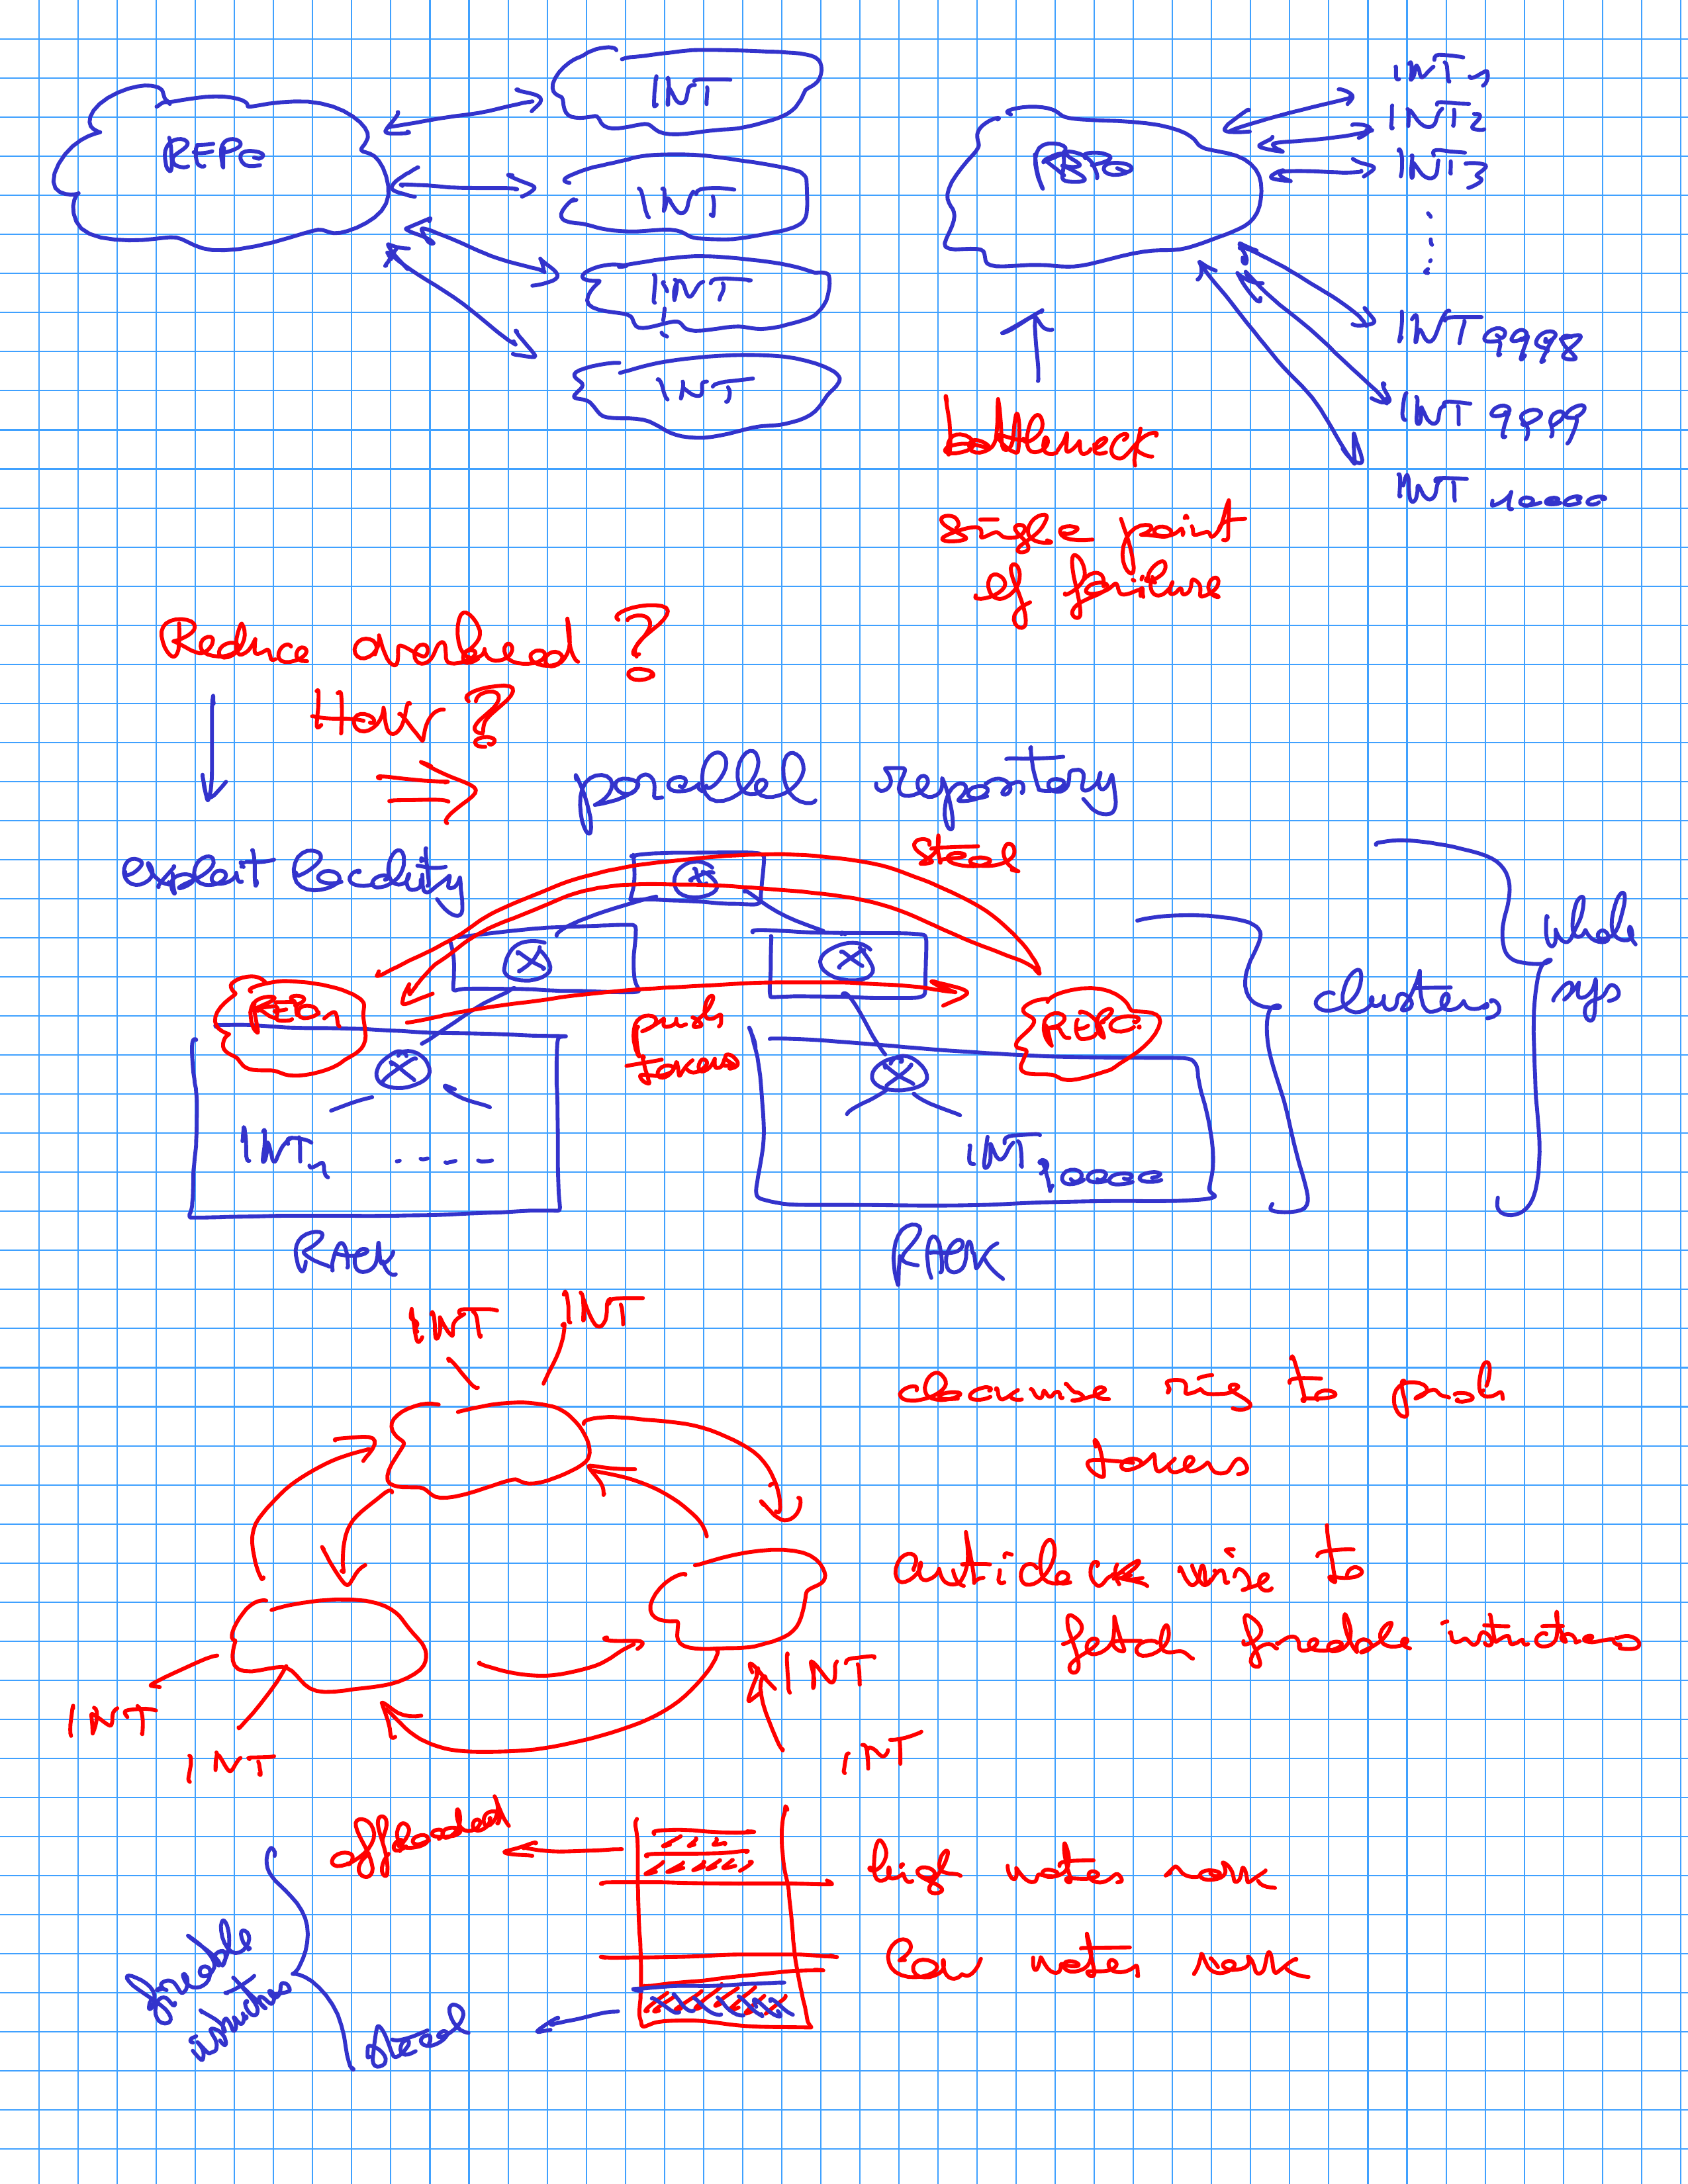 REPO
INT
INT
INT
INT
REPO
INT1
INT2
INT3
INT 9998
INT 9999
INT 10000
bottleneck
single point
of failure
Reduce overhead ?
How ?
parallel repository
exploit locality
steal
REPO1
push
tokens
REPO
clusters
whole
sys
INT1 .....
INT10000
RACK
RACK
INT
INT
INT
INT
INT
INT
clockwise ring to push
tokens
anticlockwise to
fetch fireable instructions
offloaded
high water mark
low water mark
fireable
instructions
steal